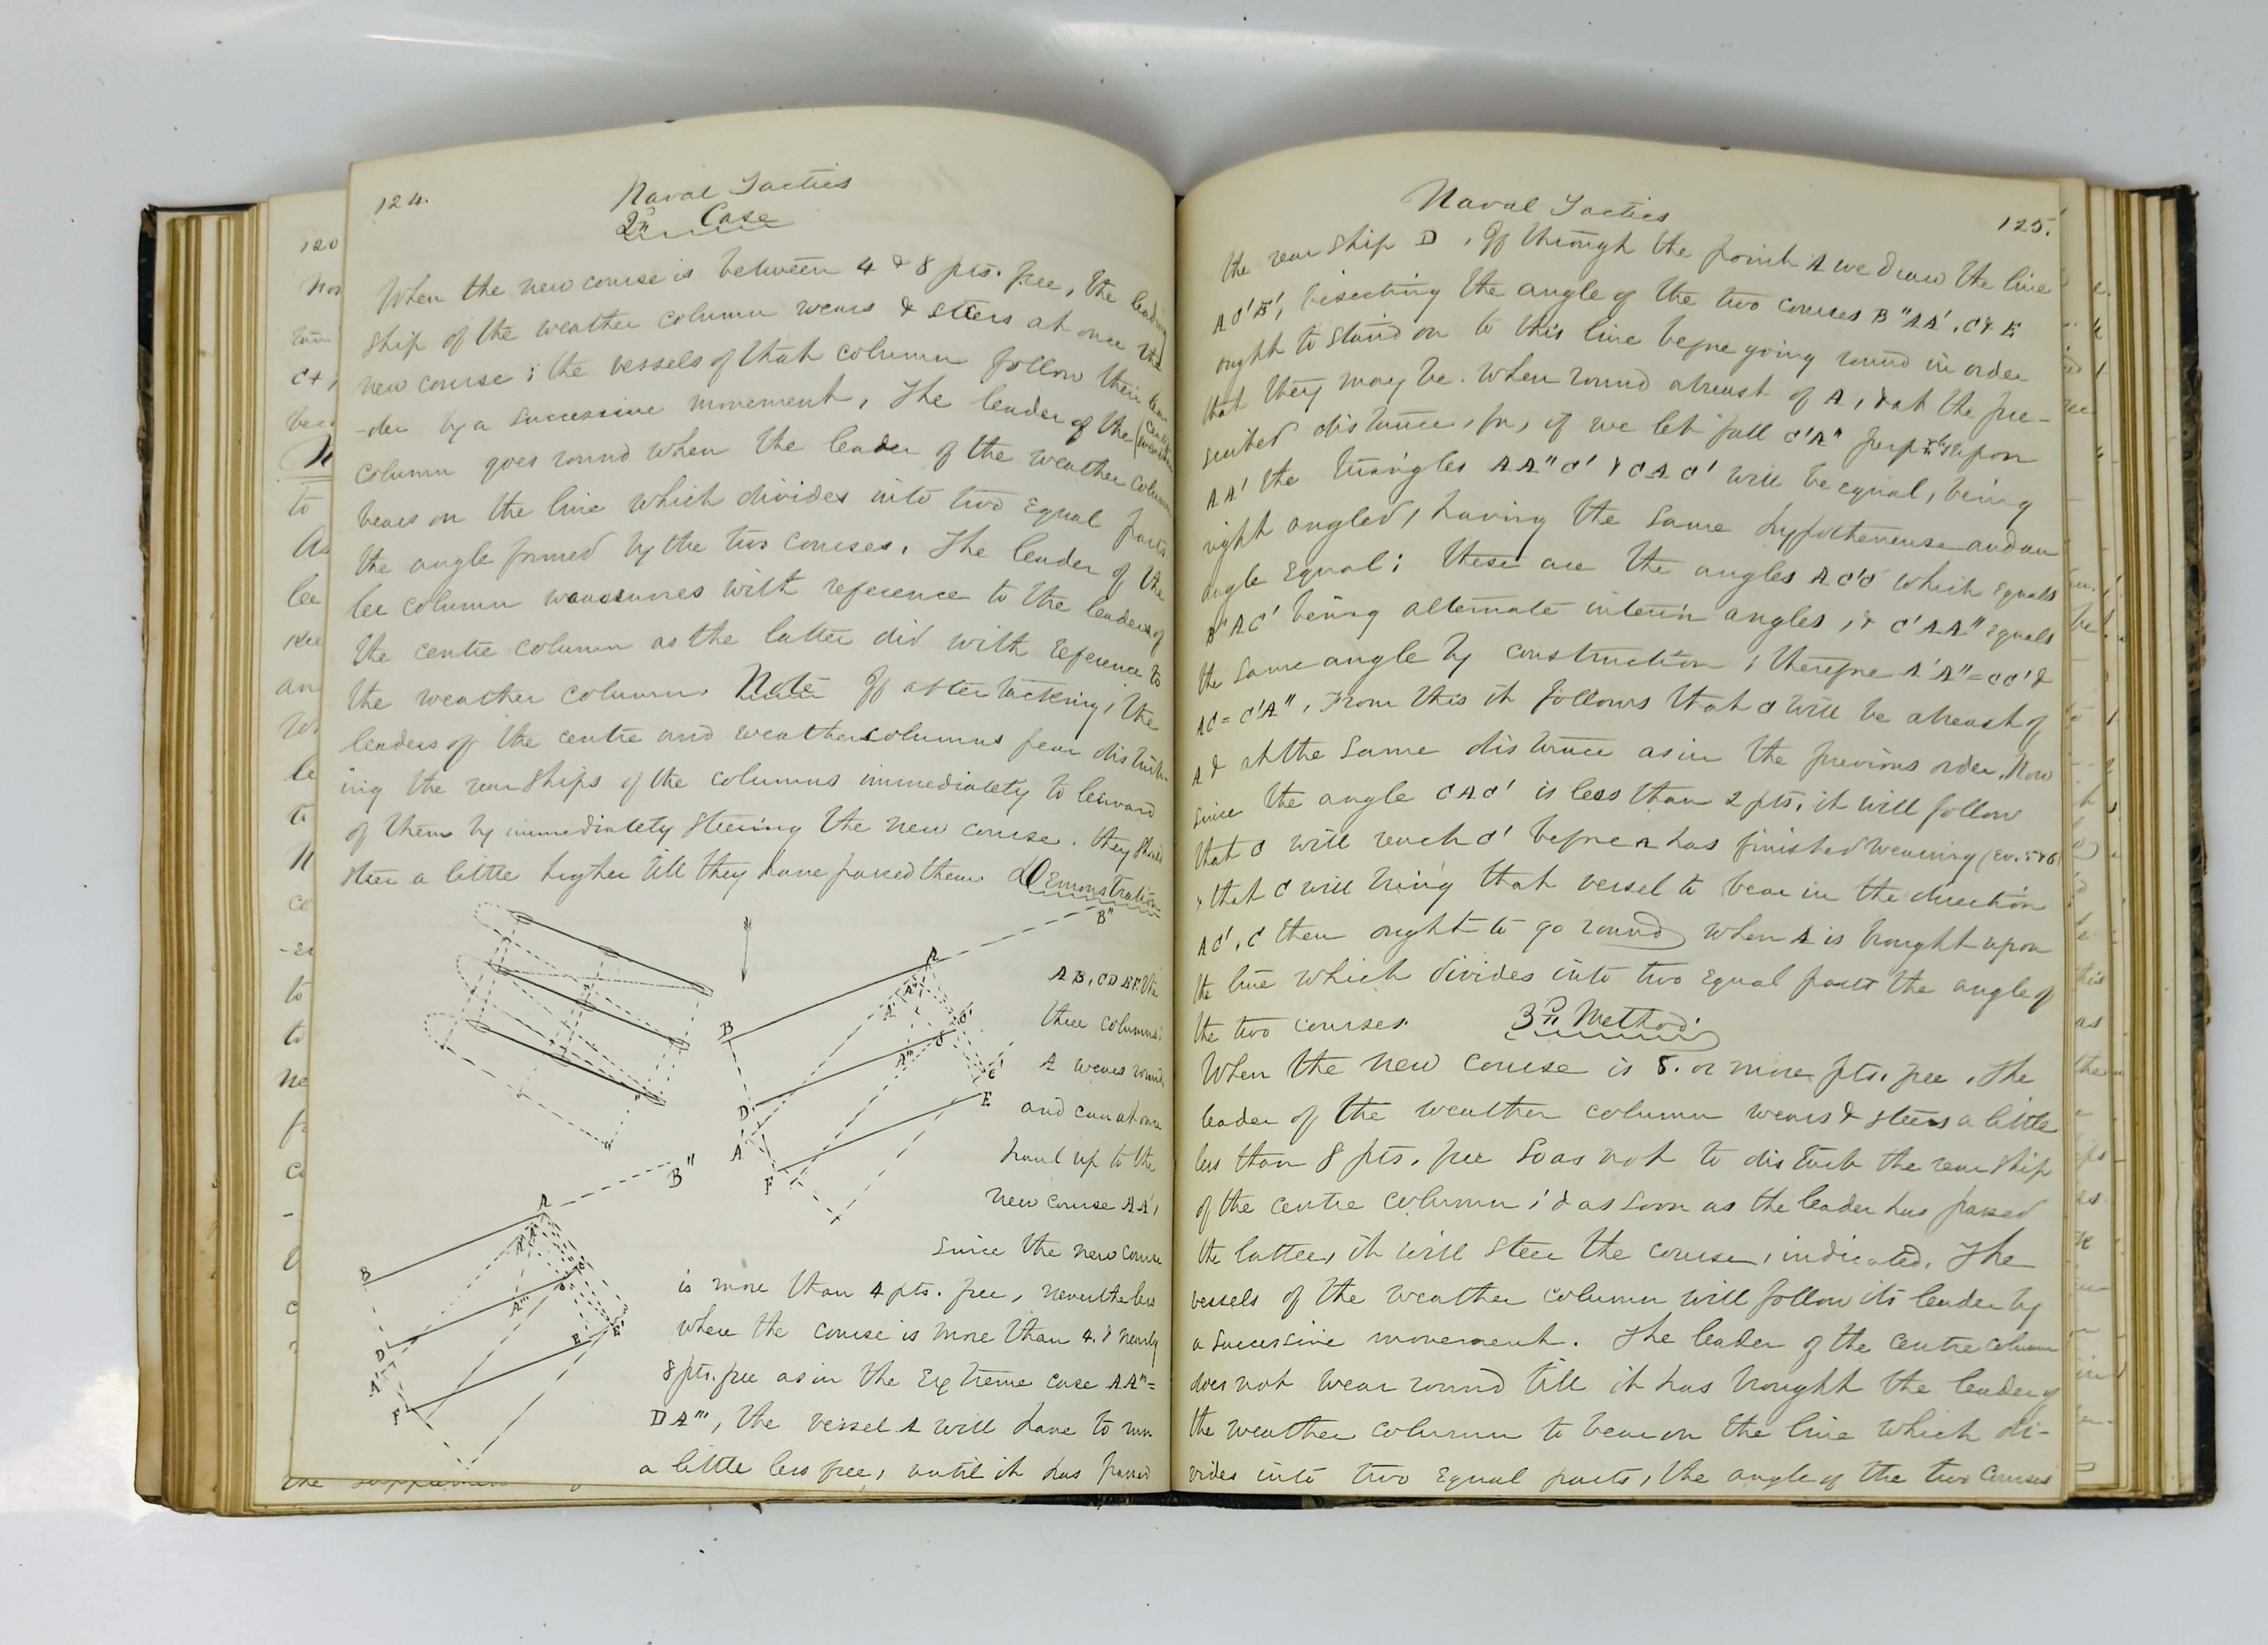 124.
Naval Tactics
2n Case
When the new course is between 4 & 8 pts. free, the leading
ship of the weather column wears & steers at once the
new course; the vessels of that column follow their lea
-der by a successive movement. The leader of the centre
column goes round when the leader of the weather column
bears on the line which divides into two Equal parts
the angle formed by the two courses. The leader of the
lee column manœuvres with reference to the leader of
the centre column as the latter did with reference to
the weather column. Note If after tacking, the
leaders of the centre and weather columns fear disturb-
ing the rear ships of the columns immediately to leeward
of them by immediately steering the new course. they should
steer a little higher till they have passed them. Demonstration
A B, C D E F. the
three columns;
A wears round
and can at once
haul up to the
new course A A',
Since the new course
is more than 4 pts. free, nevertheless
when the course is more than 4. & nearly
8 pts. free as in the Extreme case A A"=
D A"', the vessel A will have to run
a little less free, until it has passed
B"
A
A"
A'
B
C'
C
A"'
E'
D
E
A'
F
B"
A
B
C'
C
A"'
E'
E
D
A'
F
Naval Tactics
125.
the rear ship D. If through the point A we draw the line
A C' E', bisecting the angle of the two courses B" A A', C & E
ought to stand on to this line before going round in order
that they may be. when round abreast of A, & at the pre-
scribed distance, for, if we let fall C' A" perp upon
A A' the triangles A A" C' & C A C' will be equal, being
right angled, having the same hypothenuse and an
angle Equal; these are the angles A C' C which Equals
B" A C' being alternate interior angles, & C' A A" Equals
the same angle by construction; therefore A A" = C C' &
A C = C' A". From this it follows that C will be abreast of
A & at the same distance as in the previous order. Now
since the angle C A C' is less than 2 pts. it will follow
that C will reach C' before A has finished wearing (Ev. 5 & 6)
& that C will bring that vessel to bear in the direction
A C'. C then ought to go round when A is brought upon
the line which divides into two equal parts the angle of
the two courses.
3n Method.
When the new course is 8. or more pts. free. The
leader of the weather column wears & steers a little
less than 8 pts. free so as not to disturb the rear ship
of the centre column; & as soon as the leader has passed
the latter, it will steer the course, indicated. The
vessels of the weather column will follow its leader by
a successive movement. The leader of the centre column
does not wear round till it has brought the leader of
the weather column to bear on the line which di-
vides into two Equal parts, the angle of the two Courses
120